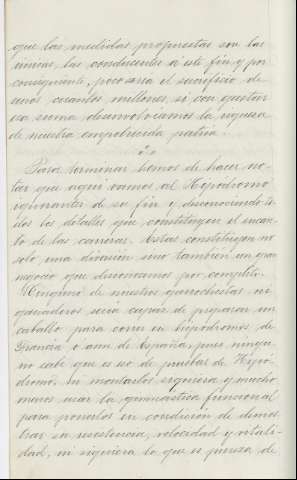 que las medidas propuestas son las
únicas, las conducentes a este fin y por
consiguiente, poco seria el sacrificio de
unos cuantos millones, si con gastar
esa suma desenvolvemos la riqueza
de nuestra empobrecida patria.
Para terminar hemos de hacer no-
tar que aqui vamos al Hipódromo
ignorantes de su fin y desconociendo to
dos los detalles que constituyen el encan-
to de las carreras. Estas constituyen no
solo una diversión sino también un gran
negocio que desconocemos por completo.
Ninguno de nuestros garrochistas ni
ganaderos seria capaz de preparar un
caballo para correr en hipódromos de
Francia o aun de España, pues ningu-
no sabe que es eso de pruebas de Hipó-
dromo, ni montarlos siquiera y mucho
menos usar la gimnástica funcional
para ponerlos en condición de demos
trar su resistencia, velocidad y vitali-
dad, ni siquiera lo que es pureza de